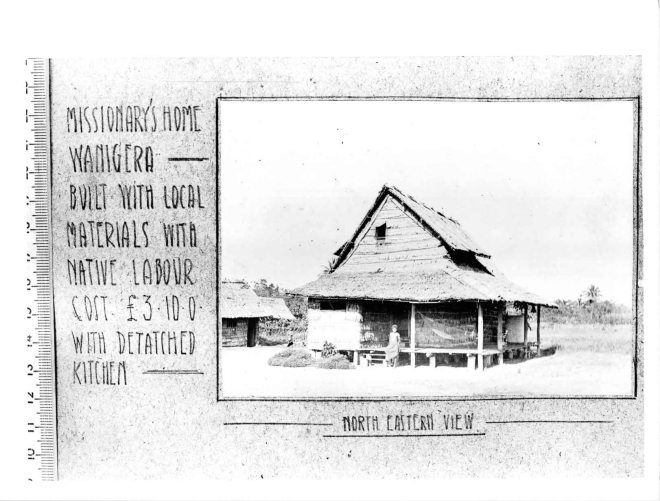 MISSIONARY'S HOME
WANIGERA —
BUILT WITH LOCAL
MATERIALS WITH
NATIVE LABOUR
COST £3·10·0
WITH DETATCHED
KITCHEN —
NORTH EASTERN VIEW
14
13
12
11
10